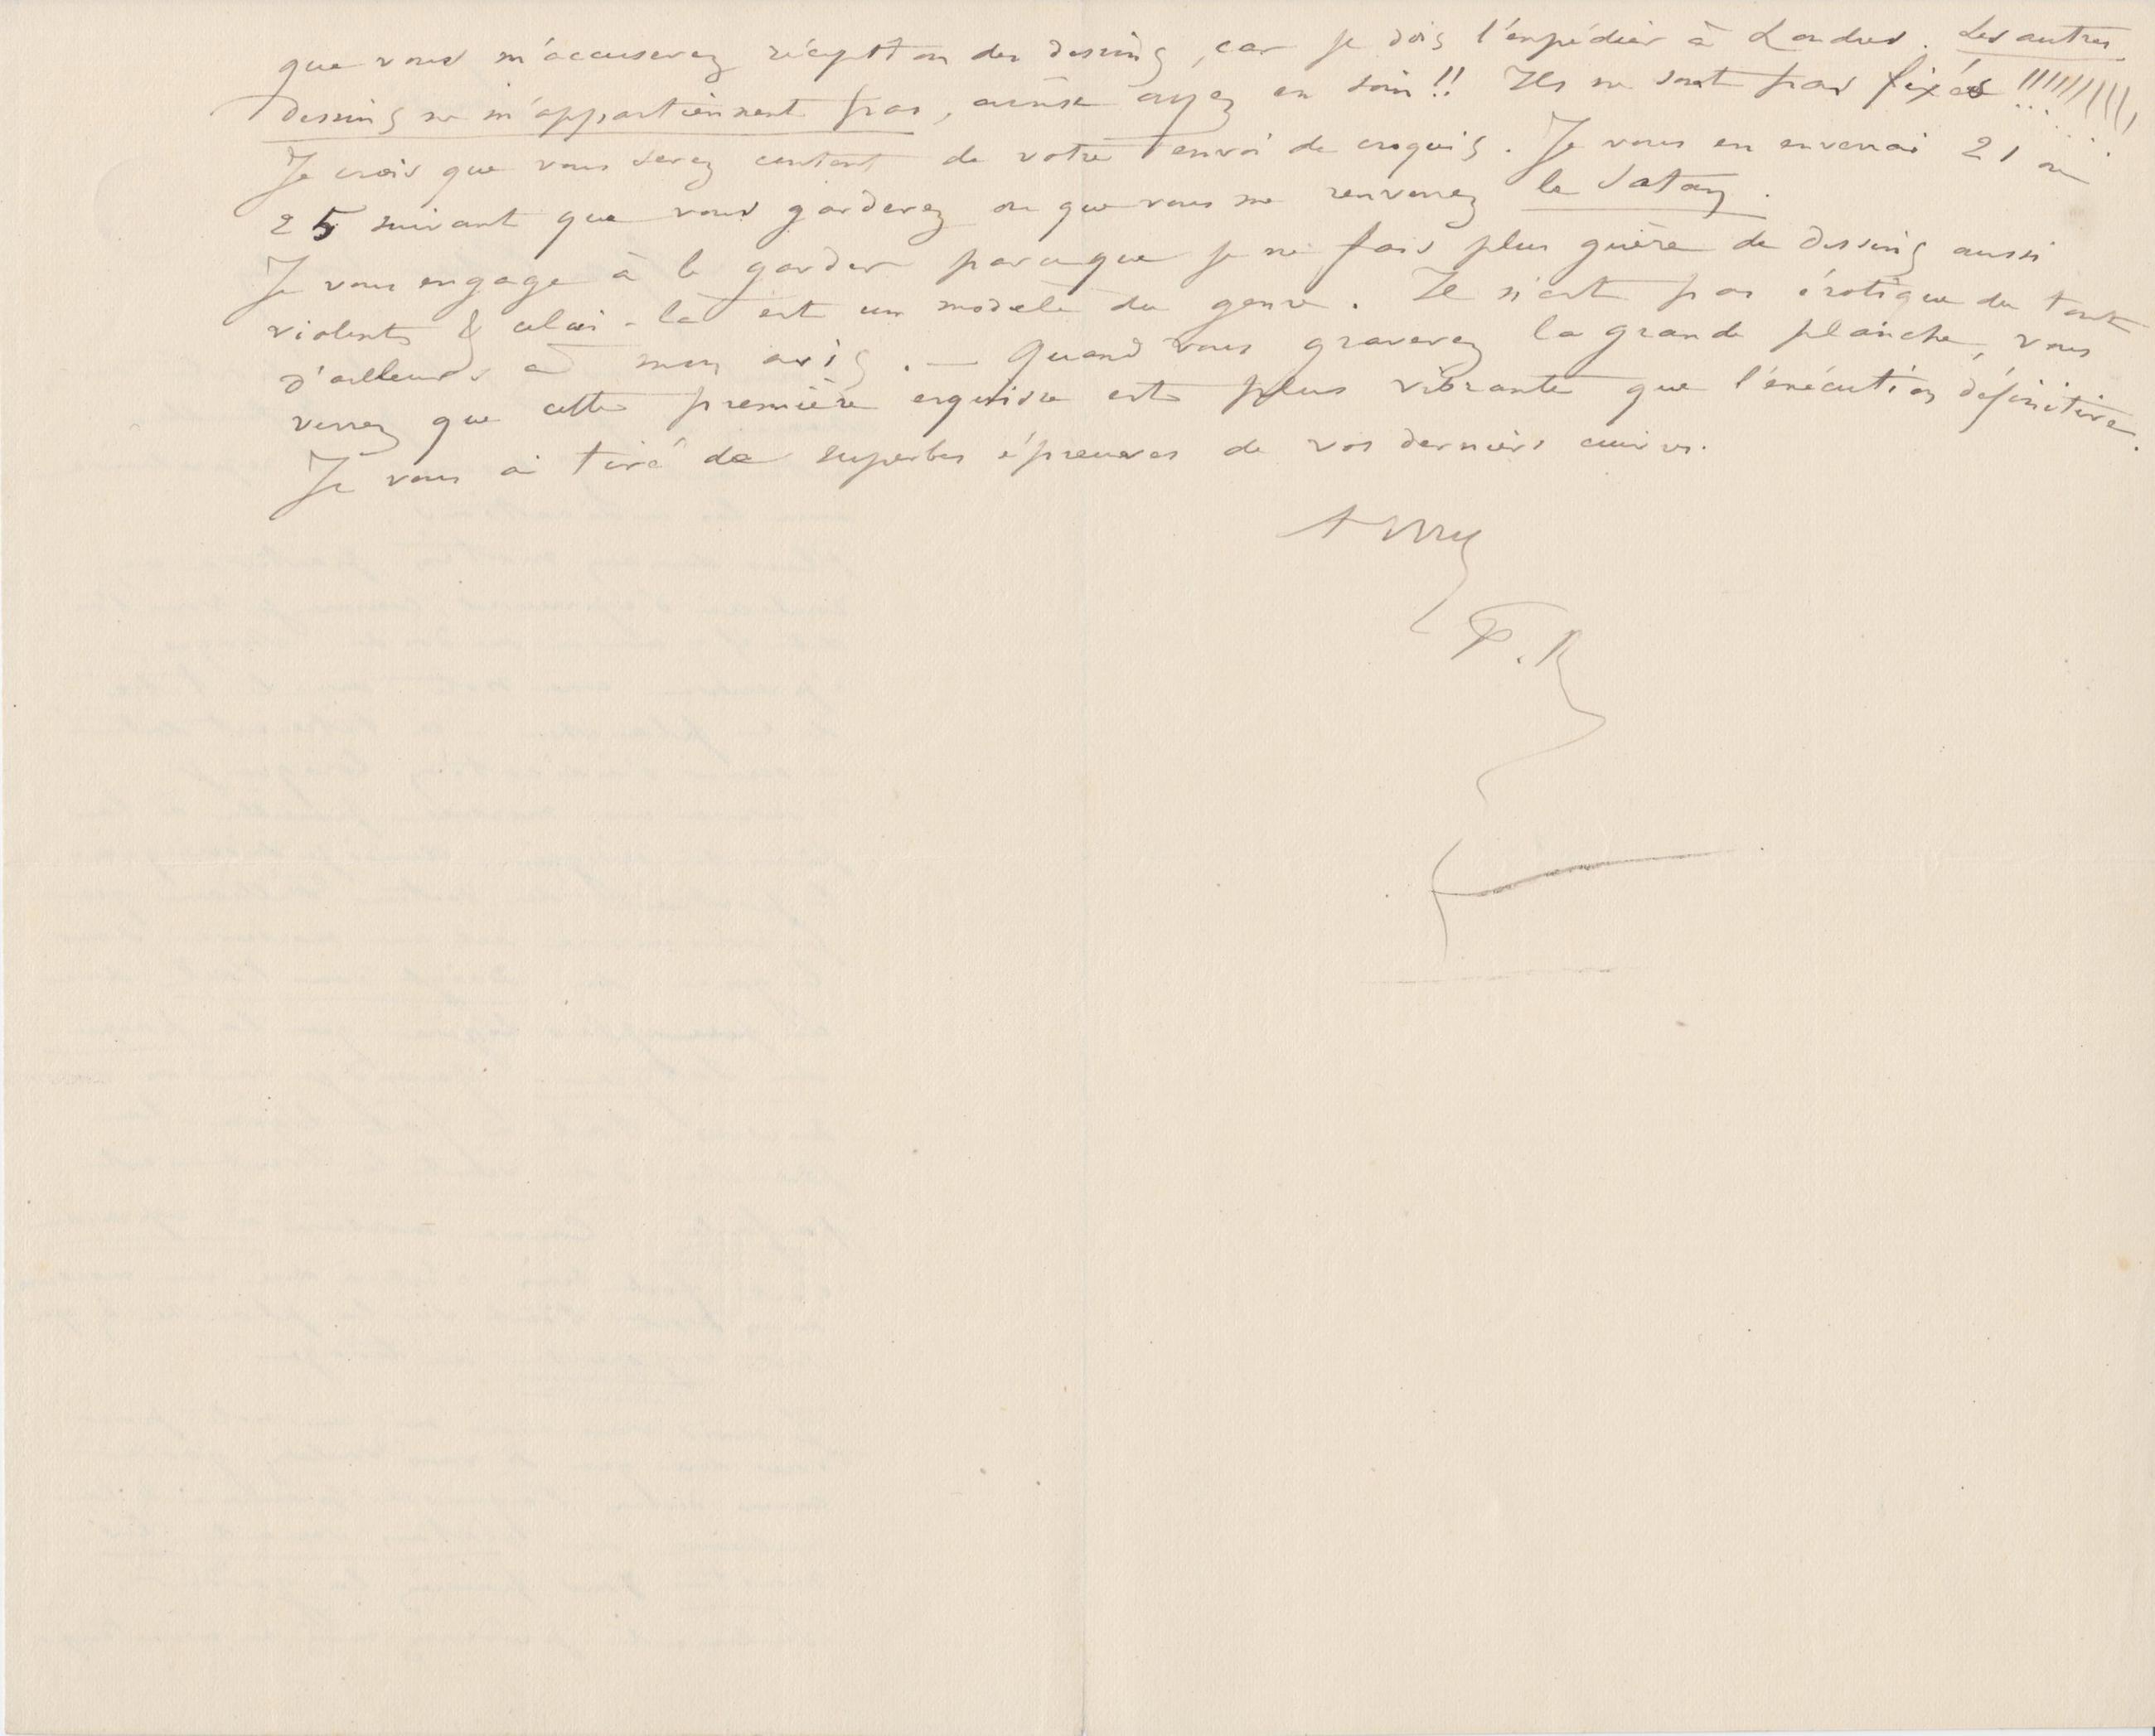 que vous m'accuserez réception des dessins, car je dois l'expédier à Londres. Les autres
dessins ne m'appartiennent pas, ainsi ayez en soin!! Ils ne sont pas fixés !!!!!!!!!
Je crois que vous serez content de votre envoi de croquis. Je vous en enverrai 21 ou
25 suivant que vous garderez ou que vous me renverrez le Satan.
Je vous engage à le garder parceque je ne fais plus guère de dessins aussi
violents & celui-là est un modèle du genre. Il n'est pas érotique du tout
d'ailleurs à mon avis. — Quand vous graverez la grande planche, vous
verrez que cette première esquisse est plus vibrante que l'exécution définitive.
Je vous ai tiré de superbes épreuves de vos derniers cuivres.
F.R